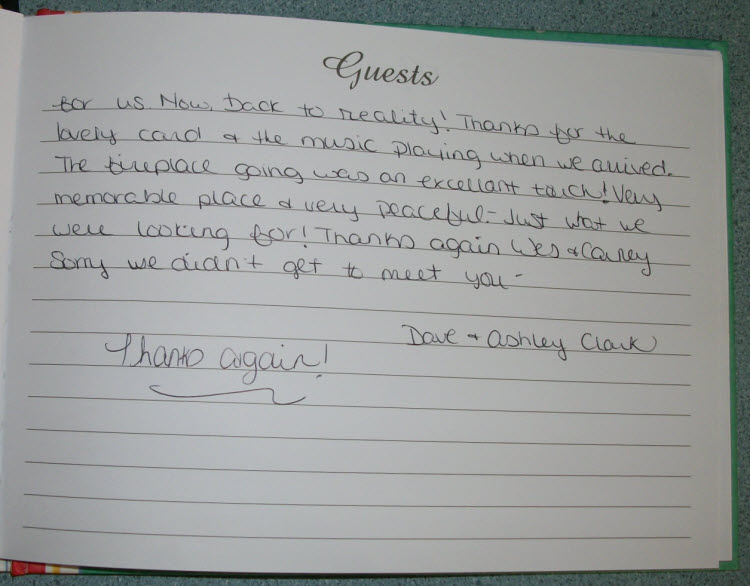 Guests
for us. Now, back to reality! Thanks for the
lovely card & the music playing when we arrived.
The fireplace going was an excellant touch! Very
memorable place & very peaceful - Just what we
were looking for! Thanks again Wes &
Sorry we didn't get to meet you -
Dave & Ashley Clark
Thanks again!